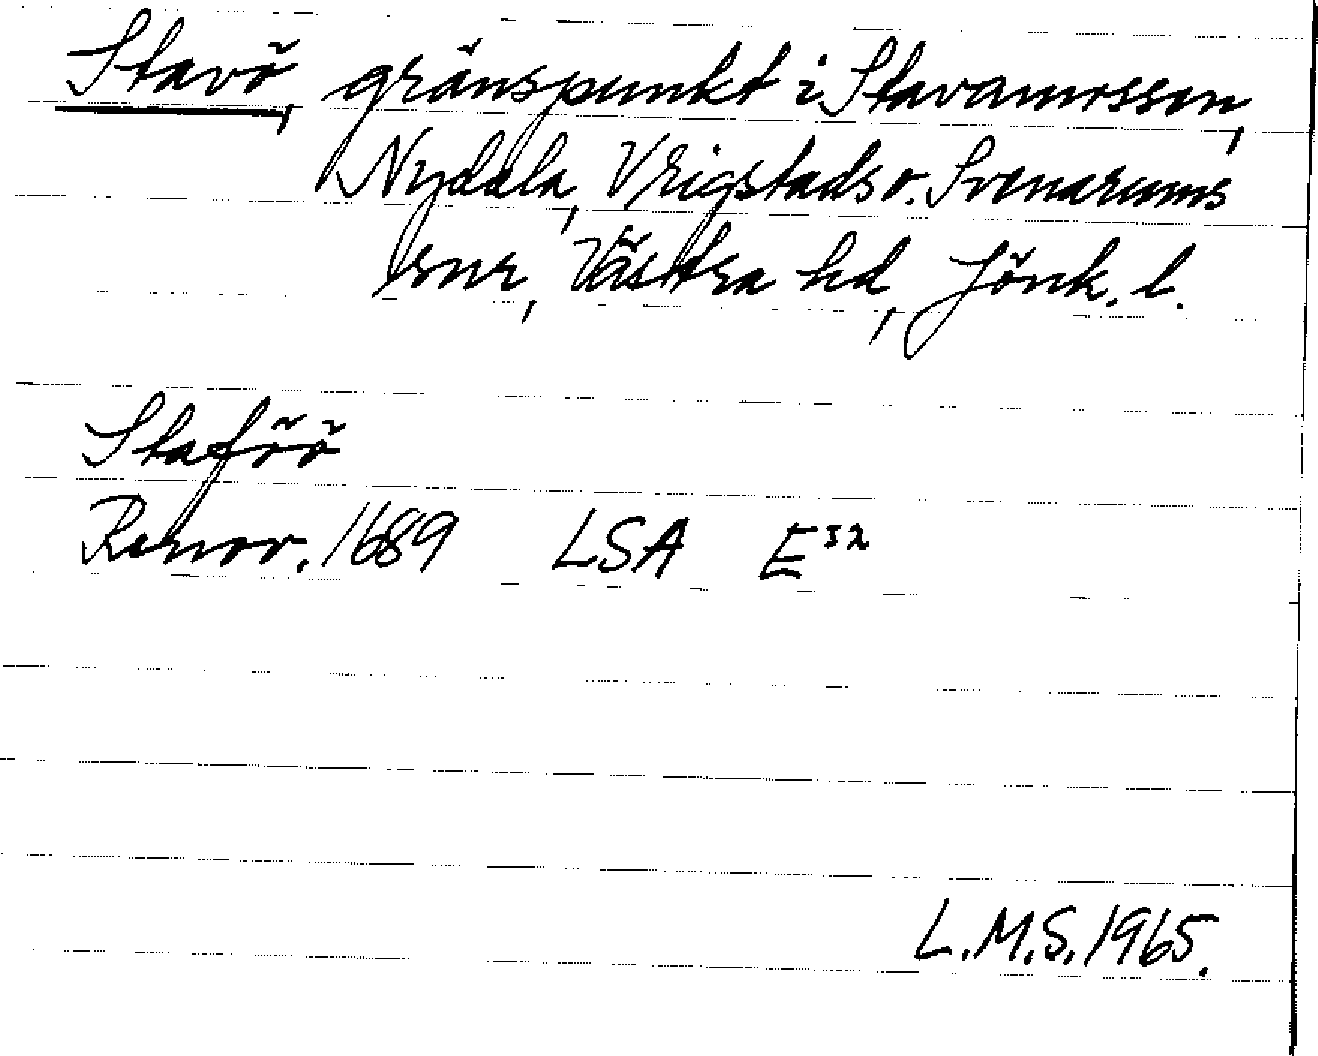 Stavö, gränspunkt i Stavamossen,
Nydala, Vrigstads o. Svenarums
snr, Västra hd, Jönk. l.
Staföö
Renov. 1689 LSA E³²
L.M.S. 1965.